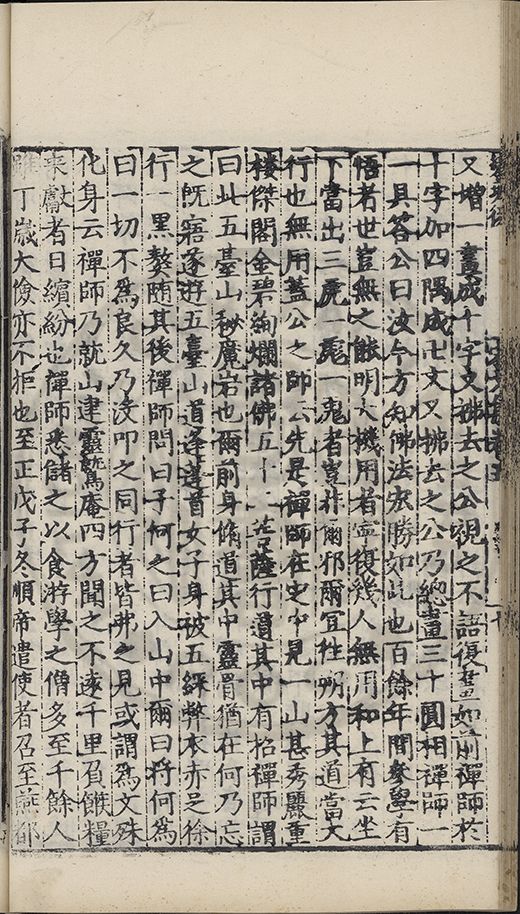 又增一畫成十字文拂去之公視之不語復畫如前禪師於
十字加四隅成卍文又拂去之公乃總畫三十圓相禪師一
一具答公曰汝今方知佛法宏勝如此也百餘年間參學有
悟者世豈無之能明大機用者寧復幾人無用和上有云坐
下當出三虎一彪一彪者豈非爾邪爾宜往朔方其道當大
行也無用蓋公之師公先是禪師在定中見一山甚秀麗重
樓傑閣金碧絢爛諸佛五十二菩薩行道其中有招禪師謂
曰此五臺山秘魔岩也爾前身脩道其中靈骨猶在何乃忘
之既寤遂遊五臺山道逢蓬首女子身被五綵弊衣赤足徐
行一黑獒隨其後禪師問曰子何之曰入山中爾曰將何為
曰一切不為良久乃沒叩之同行者皆弗之見或謂為文殊
化身云禪師乃就山建靈鷲庵四方聞之不遠千里負餱糧
來獻者日繽紛也禪師悉儲之以食游學之僧多至千餘人
雖丁歲大儉亦不拒也至正戊子冬順帝遣使者召至燕都